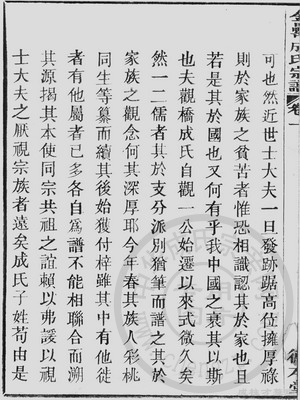 可也然近世士大夫一旦發跡踞高位擁厚祿
則於家族之貧苦者惟恐相識認其於家也且
若是其於國也又何有乎我中國之衰其以斯
也夫觀橋成氏自觀一公始遷以來式微久矣
然一二儒者其於支分派別猶筆而譜之其於
家族之觀念何其深厚耶今年春其族人彩桃
同生等纂而續其後始獲付梓雖其中有他徙
者有他屬者已多各自為譜不能相聯合而溯
其源揭其本使同宗共祖之誼賴以弗諼以視
士大夫之厭視宗族者遠矣成氏子姓苟由是
成氏宗譜
卷一